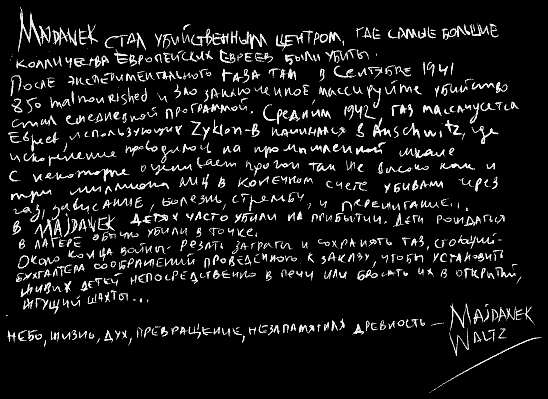 MAJDANEK СТАЛ УБИЙСТВЕННЫМ ЦЕНТРОМ, ГДЕ САМЫЕ БОЛЬШИЕ
КОЛЛИЧЕСТВА ЕВРОПЕЙСКИХ ЕВРЕЕВ БЫЛИ УБИТЫ.
ПОСЛЕ ЭКСПЕРИМЕНТАЛЬНОГО ГАЗА ТАМ В СЕНТЯБРЕ 1941
850 malnourished и ЗЛО ЗАКЛЮЧЕННОЕ МАССИРУЙТЕ УБИЙСТВО
СТАЛ ЕЖЕДНЕВНОЙ ПРОГРАММОЙ. СРЕДНИМ 1942, ГАЗ МАССА
ЕВРЕЕВ, ИСПОЛЬЗУЮЩИХ Zyklon-B НАЧИНАЛСЯ В Auschwitz, ГДЕ
ИСКОРЕНЕНИЕ ПРОВОДИЛОСЬ НА ПРОМЫШЛЕННОЙ ШКАЛЕ
С НЕКОТОРЫЕ ОЦЕНИВАЕТ ПРОГОН ТАК ЖЕ ВЫСОКО КАК И
ТРИ МИЛЛИОНА ЛИЦ В КОНЕЧНОМ СЧЕТЕ УБИВАЛИ ЧЕРЕЗ
ГАЗ, БОЛЕЗНЬ, СТРЕЛЬБУ, И
В MAJDANEK ДЕТЕЙ ЧАСТО УБИЛИ НА ПРИБЫТИИ. ДЕТИ РОЖДАТЬСЯ
В ЛАГЕРЕ ОБЫЧНО УБИЛИ В ТОЧКЕ.
ОКОЛО КОНЦА ВОЙНЫ- РЕЗАТЬ ЗАТРАТЫ И СОХРАНЯТЬ ГАЗ, СТОЯЩИЙ-
БУХГАЛТЕРА СООБРАЖЕНИЙ ПРОВЕДЕННОГО К ЗАКАЗУ, ЧТОБЫ УСТАНОВИТЬ
ЖИВЫХ ДЕТЕЙ НЕПОСРЕДСТВЕННО В ПЕЧИ ИЛИ БРОСАТЬ ИХ В ОТКРЫТЫЙ,
ЖГУЩИЙ ШАХТЫ...
НЕБО, ЖИЗНЬ, ДУХ, ПРЕВРАЩЕНИЕ, НЕЗАПАМЯТНАЯ ДРЕВНОСТЬ — MAJDANEK
WALTZ